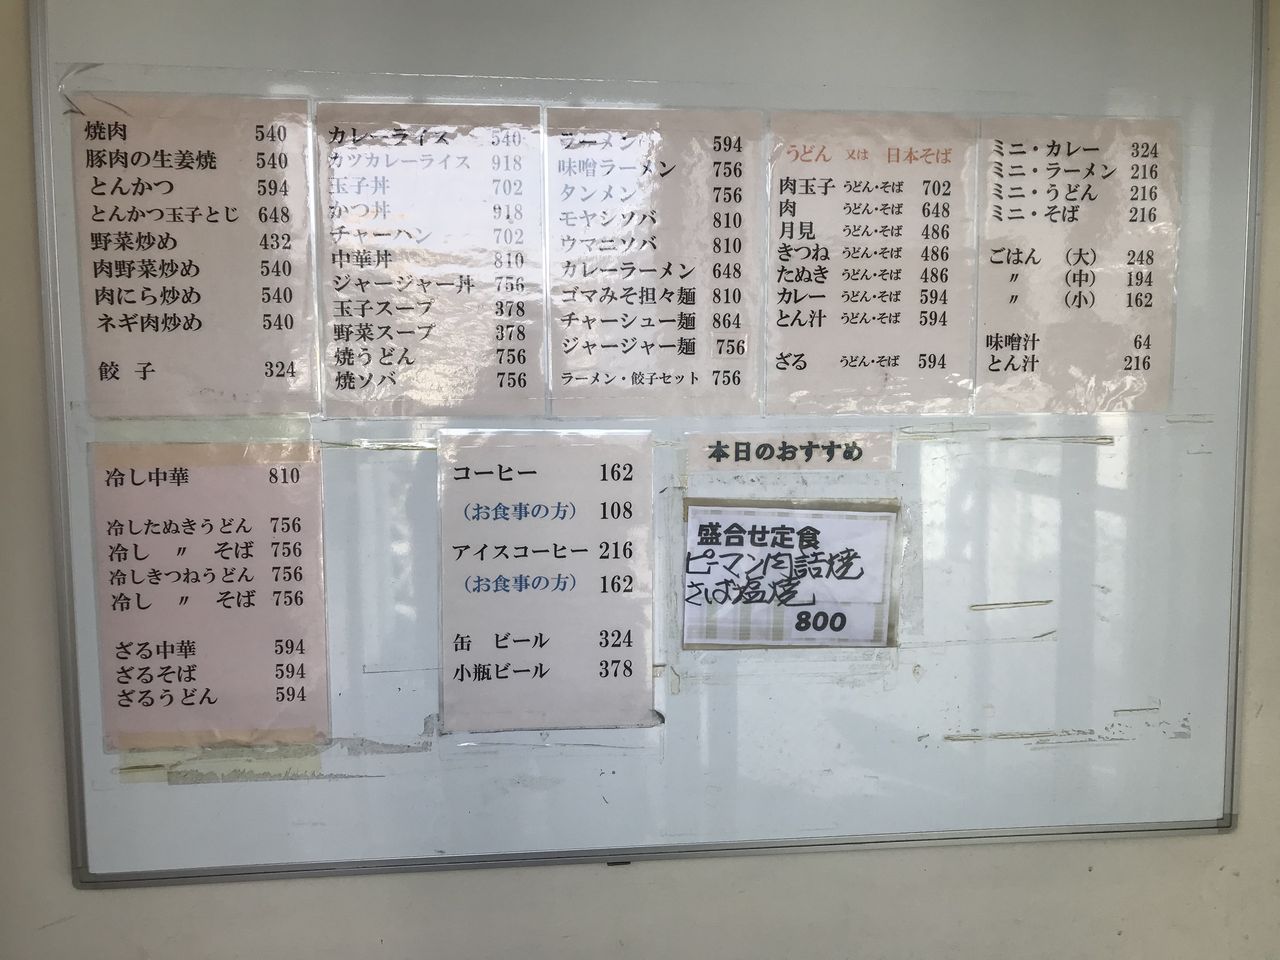 焼肉 540
豚肉の生姜焼 540
とんかつ 594
とんかつ玉子とじ 648
野菜炒め 432
肉野菜炒め 540
肉にら炒め 540
ネギ肉炒め 540
餃子 324
カレーライス 540
カツカレーライス 918
玉子丼 702
かつ丼 918
チャーハン 702
中華丼 810
ジャージャー丼 756
玉子スープ 378
野菜スープ 378
焼うどん 756
焼ソバ 756
ラーメン 594
味噌ラーメン 756
タンメン 756
モヤシソバ 810
ウマニソバ 810
カレーラーメン 648
ゴマみそ担々麺 810
チャーシュー麺 864
ジャージャー麺 756
ラーメン・餃子セット 756
うどん 又は 日本そば
肉玉子 うどん・そば 702
肉 うどん・そば 648
月見 うどん・そば 486
きつね うどん・そば 486
たぬき うどん・そば 486
カレー うどん・そば 594
とん汁 うどん・そば 594
ざる うどん・そば 594
ミニ・カレー 324
ミニ・ラーメン 216
ミニ・うどん 216
ミニ・そば 216
ごはん (大) 248
〃 (中) 194
〃 (小) 162
味噌汁 64
とん汁 216
冷し中華 810
冷したぬきうどん 756
冷し 〃 そば 756
冷しきつねうどん 756
冷し 〃 そば 756
ざる中華 594
ざるそば 594
ざるうどん 594
コーヒー 162
(お食事の方) 108
アイスコーヒー 216
(お食事の方) 162
缶 ビール 324
小瓶ビール 378
本日のおすすめ
盛合せ定食
ピーマン肉詰焼
さば塩焼」
800